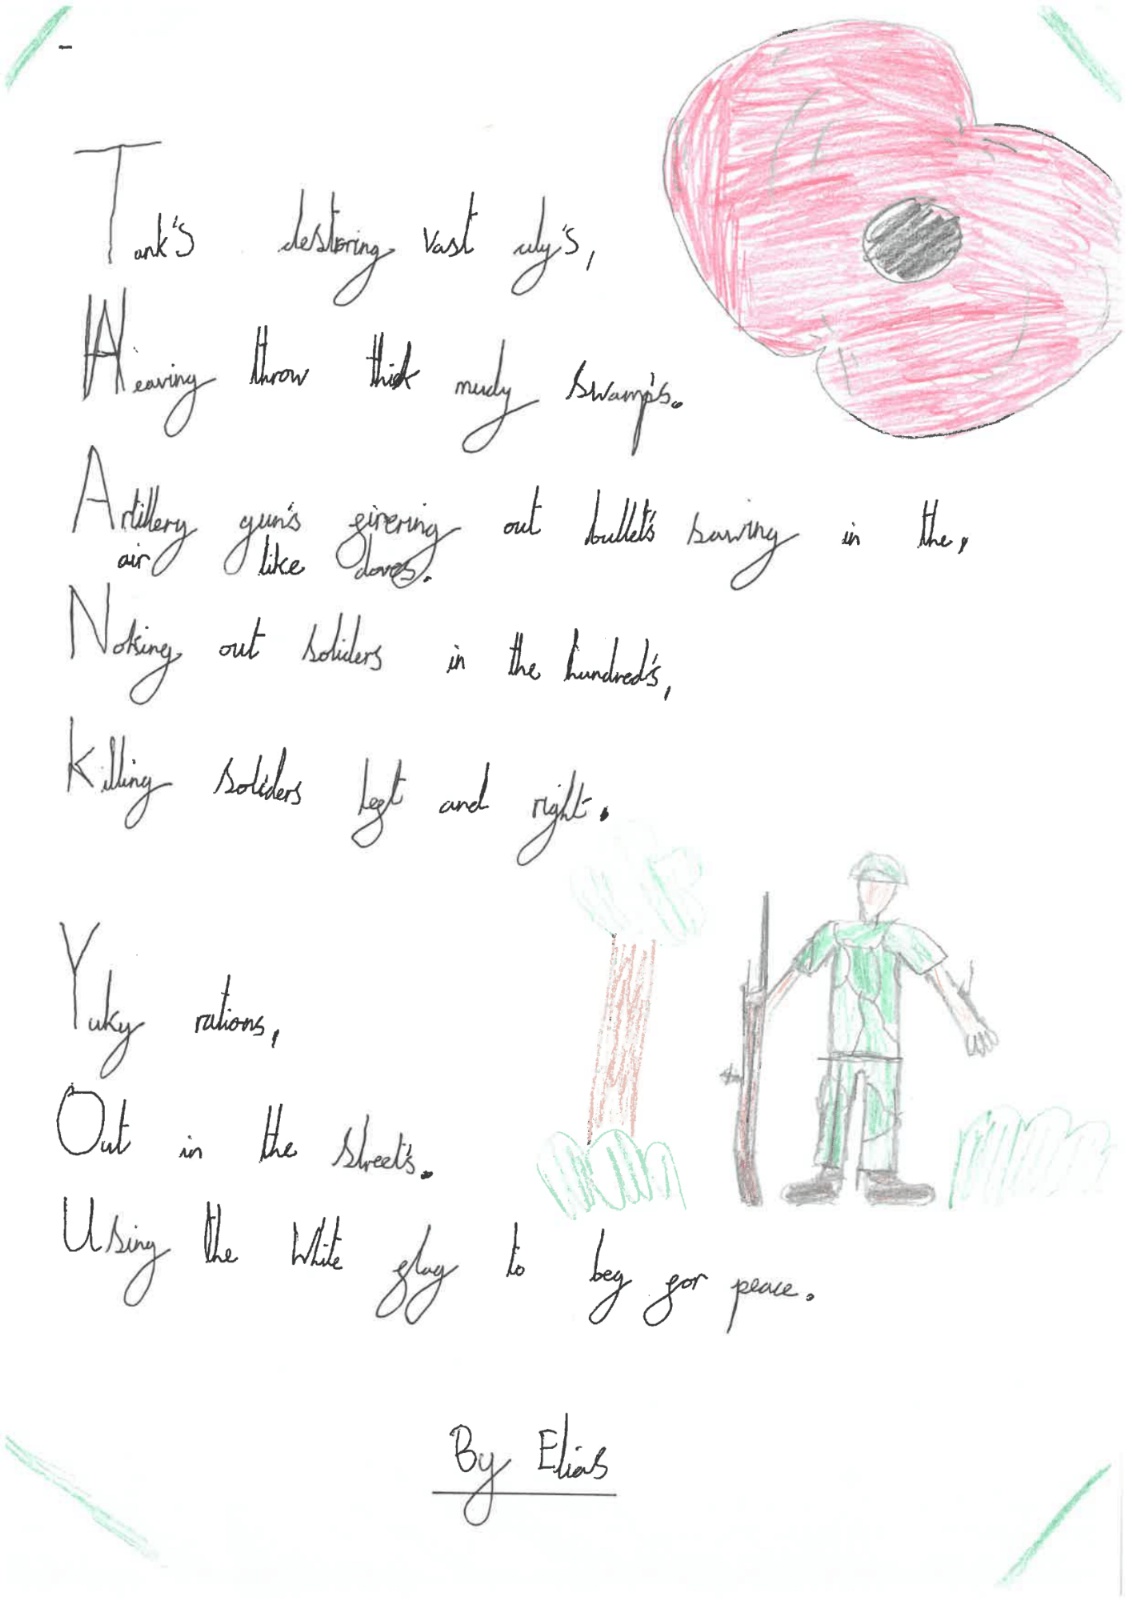 Tank's destoring vast city's,
Heaving throw thick mudy swamp's.
Artillery gun's firering out bullet's sawing in the,
air like doves.
Noking out soliders in the hundred's,
Killing soliders left and right.
Yuky rations,
Out in the street's.
Using the white flag to beg for peace.
By Elias